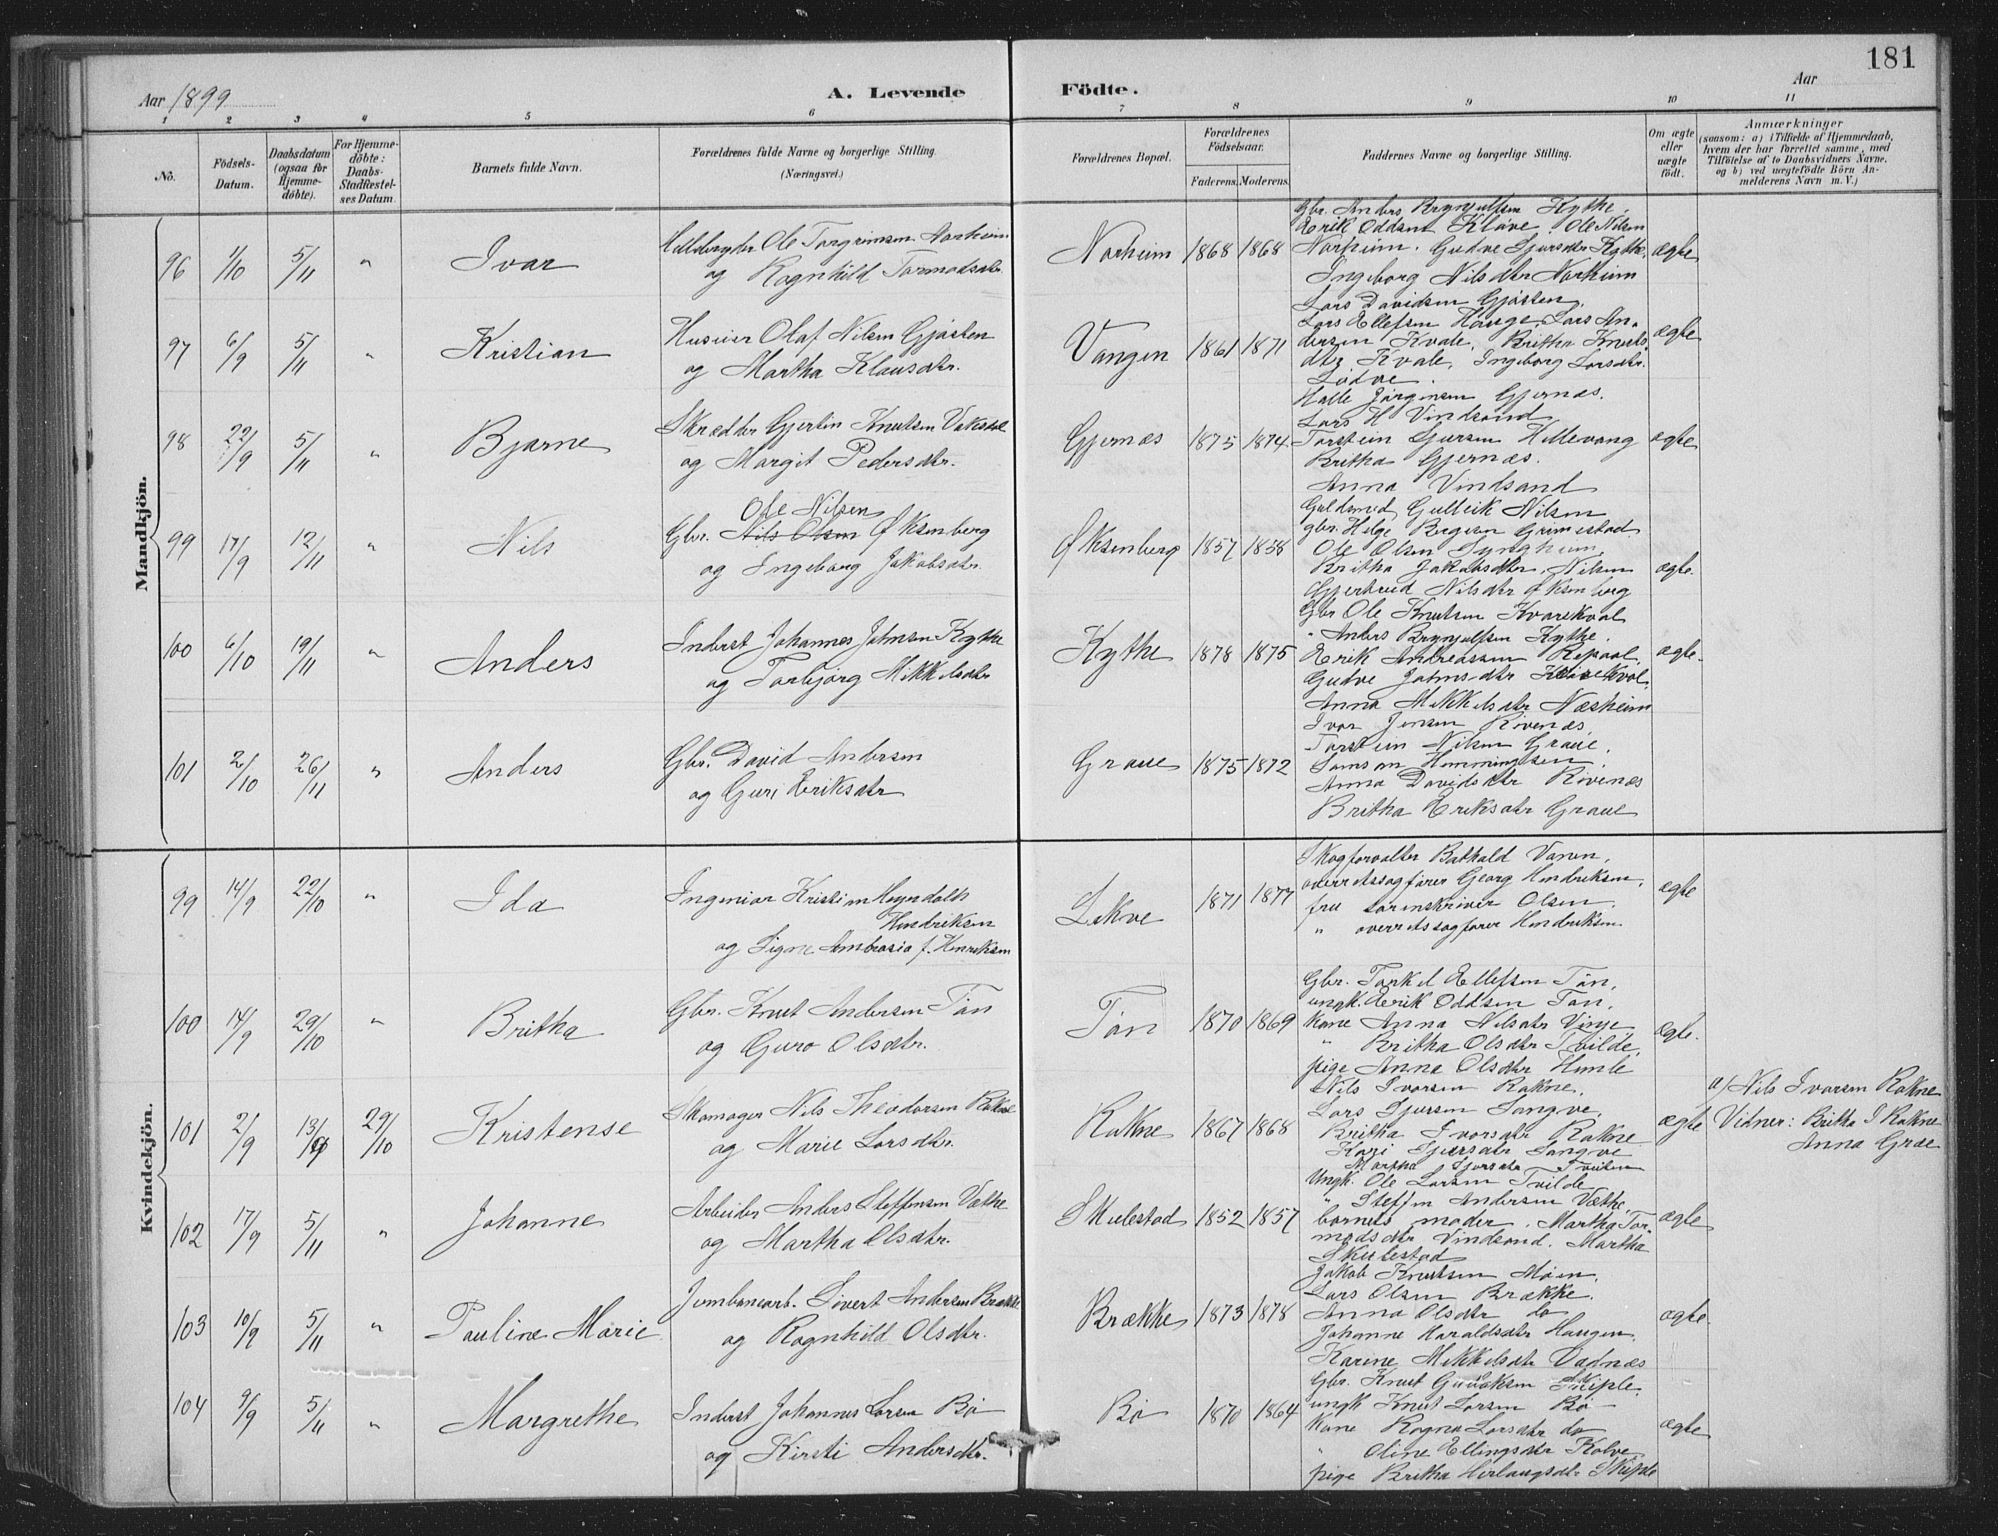 181
Aar 1899
A. Levende
Födte.
Aar
1 2 3 4 5 6 7 8 9 10 11
No.
Födsels-Datum.
Daabsdatum (ogsaa for Hjemmedöbte).
For Hjemmedöbte: Daabs-Stadfæstelses Datum.
Barnets fulde Navn.
Forældrenes fulde Navne og borgerlige Stilling.
(Næringsvei.)
Forældrenes Bopæl.
Forældrenes Födselsaar.
Faderens. Moderens.
Faddernes Navne og borgerlige Stilling.
Om ægte eller uægte födt.
Anmærkninger
(saasom: a) i Tilfælde af Hjemmedaab,
hvem der har forrettet samme, med
Tilföielse af to Daabsvidners Navne,
og b) ved uægtefödte Börn Anmelderens Navn m. V.)
Mandkjön.
96 1/10 5/11 " Ivar
Ole Torgrimsen Norheim
og Rognhild Tormodsdtr.
Norheim 1868 1868
Gbr. Anders Brynjulfsen Kythe.
Erik Oddsen Kløve. Ole Nilsen
Norheim. Gudve Sjursdtr Kythe.
Ingeborg Nilsdtr Norheim
ægte
97 6/9 5/11 " Kristian
Olaf Nilsen Gjøsten
og Martha Klausdtr.
Vangen 1861 1871
Lars Davidsen Gjøsten.
Lars Ellefsen Hauge. Lars An-
dersen Kvale. Britha Knuts-
dtr Kvale. Ingeborg Larsdtr.
Lødve.
ægte
98 22/9 5/11 " Bjarne
Skrædder Gjertin Knutsen
og Margit Pedersdtr.
Gjernæs 1875 1874
Halle Jørgensen Gjernæs.
Lars H Vindsand
Torstein Sjursen Hillevang
Britha Gjernæs.
Anna Vindsand
ægte
99 17/9 12/11 " Nils
Ole Nilsen
Gbr. Nils Olsen Øksenberg
og Ingeborg Jakobsdtr.
Øksenberg 1857 1858
Guldsmed Gulleik Nilsen
gbr. Helge Grimestad
Ole Olsen
Britha Jakobsdtr Nilsen
Gjertrud Nilsdtr Øksenberg
ægte.
100 6/10 19/11 " Anders
Inderst Johannes Johnsen Kythe
og Torbjørg Mikkelsdtr
Kythe 1878 1875
Gbr Ole Knutsen Kvarekval
" Anders Brynjulfsen Kythe.
Erik Andreassen Repaal.
Gudve Johnsdtr
Anna Mikkelsdtr Næsheim
ægte.
101 2/10 26/11 " Anders
Gbr. David Andersen
og Guri Eriksdtr
Graue 1875 1872
Ivar Jensen Rivenæs,
Torstein Nilsen Graue.
Samson Hemmingsen.
Anna Davidsdtr Rivenæs
Britha Eriksdtr Graue
Kvindekjön.
99 14/9 22/10 " Ida
Ingeniør
Hendriksen
og Signe Ambrosia f. Henriksen
Lekve 1871 1877
Skogforvalter
overretssagfører Georg Hendriksen,
fru sorenskriver Olsen.
" overretssagfører Hendriksen
ægte
100 14/9 29/10 " Britha
Gbr. Knut Andersen Tøn
og Guro Olsdtr.
Tøn 1870 1869
Gbr. Torkel Ellefsen Tøn,
ungk. Erik Oddsen Tøn,
kone Anna Nilsdtr Vinje,
" Britha Olsdtr Tvilde,
pige Anna Olsdtr Himle
ægte.
101 2/9 13/9 29/10 Kristense
Skomager Nils Theodorsen Rokne
og Marie Larsdtr.
Rokne 1867 1868
Nils Ivarsen Rokne,
Lars Sjursen Sangve,
Britha Ivarsdtr Rokne
Kari Sjursdtr Sangve
Martha Sjursdtr
ægte
a) Nils Ivarsen Rokne
Vidner: Britha I Rokne
Anna Graae
102 17/9 5/11 " Johanne
Arbeider Anders Steffensen Væthe
og Martha Olsdtr.
Skulestad 1852 1857
Ungk. Ole Larsen Tvilde
" Steffen Andersen Væthe,
barnets moder. Martha Tor-
modsdtr Vindsand. Martha
Skulestad
ægte
103 10/9 5/11 " Pauline Marie
Jernbanearb. Sivert Andersen Brække
og Rognhild Olsdtr.
Brække 1873 1878
Jakob Knutsen Moen.
Lars Olsen Brække.
Anna Olsdtr do
Johanne Haraldsdtr Haugen.
Karine Mikkelsdtr Vadnæs
ægte.
104 9/9 5/11 " Margrethe
Inderst Johannes Larsen Bø
og Kirsti Andersdtr.
Bø 1870 1864
Gbr. Knut Skiple.
ungk Knut Larsen Bø
Kone Rogna Larsdtr do
" Oline Ellingsdtr Kolve
pige Britha Herlaugsdtr. Skiple
ægte